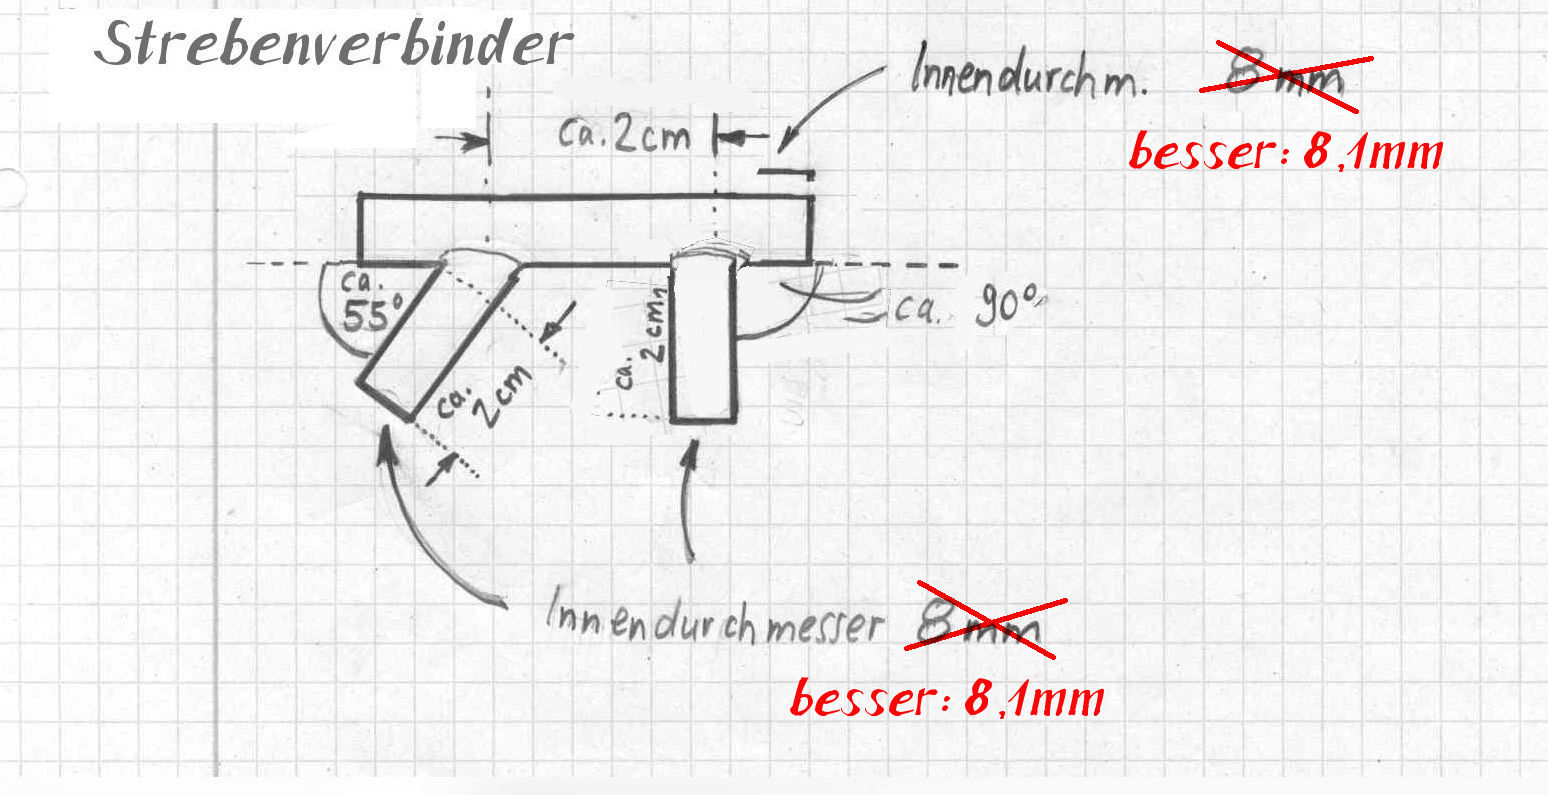 Strebenverbinder
Innendurchm. 8 mm
besser: 8,1mm
ca. 2 cm
ca.
55°
ca.
2 cm
ca.
2 cm
ca. 90°
Innendurchmesser 8 mm
besser: 8,1mm